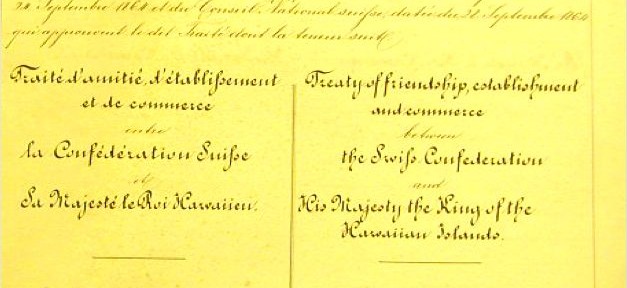 24 Septembre 1864 et du Conseil National suisse, datée du 30 Septembre 1864
qui approuvent le dit Traité dont la teneur suit
Traité d'amitié, d'établissement
et de commerce
entre
la Confédération Suisse
et
Sa Majesté le Roi Hawaiien.
Treaty of friendship, establishment
and commerce
between
the Swiss Confederation
and
His Majesty the King of the
Hawaiian Islands.